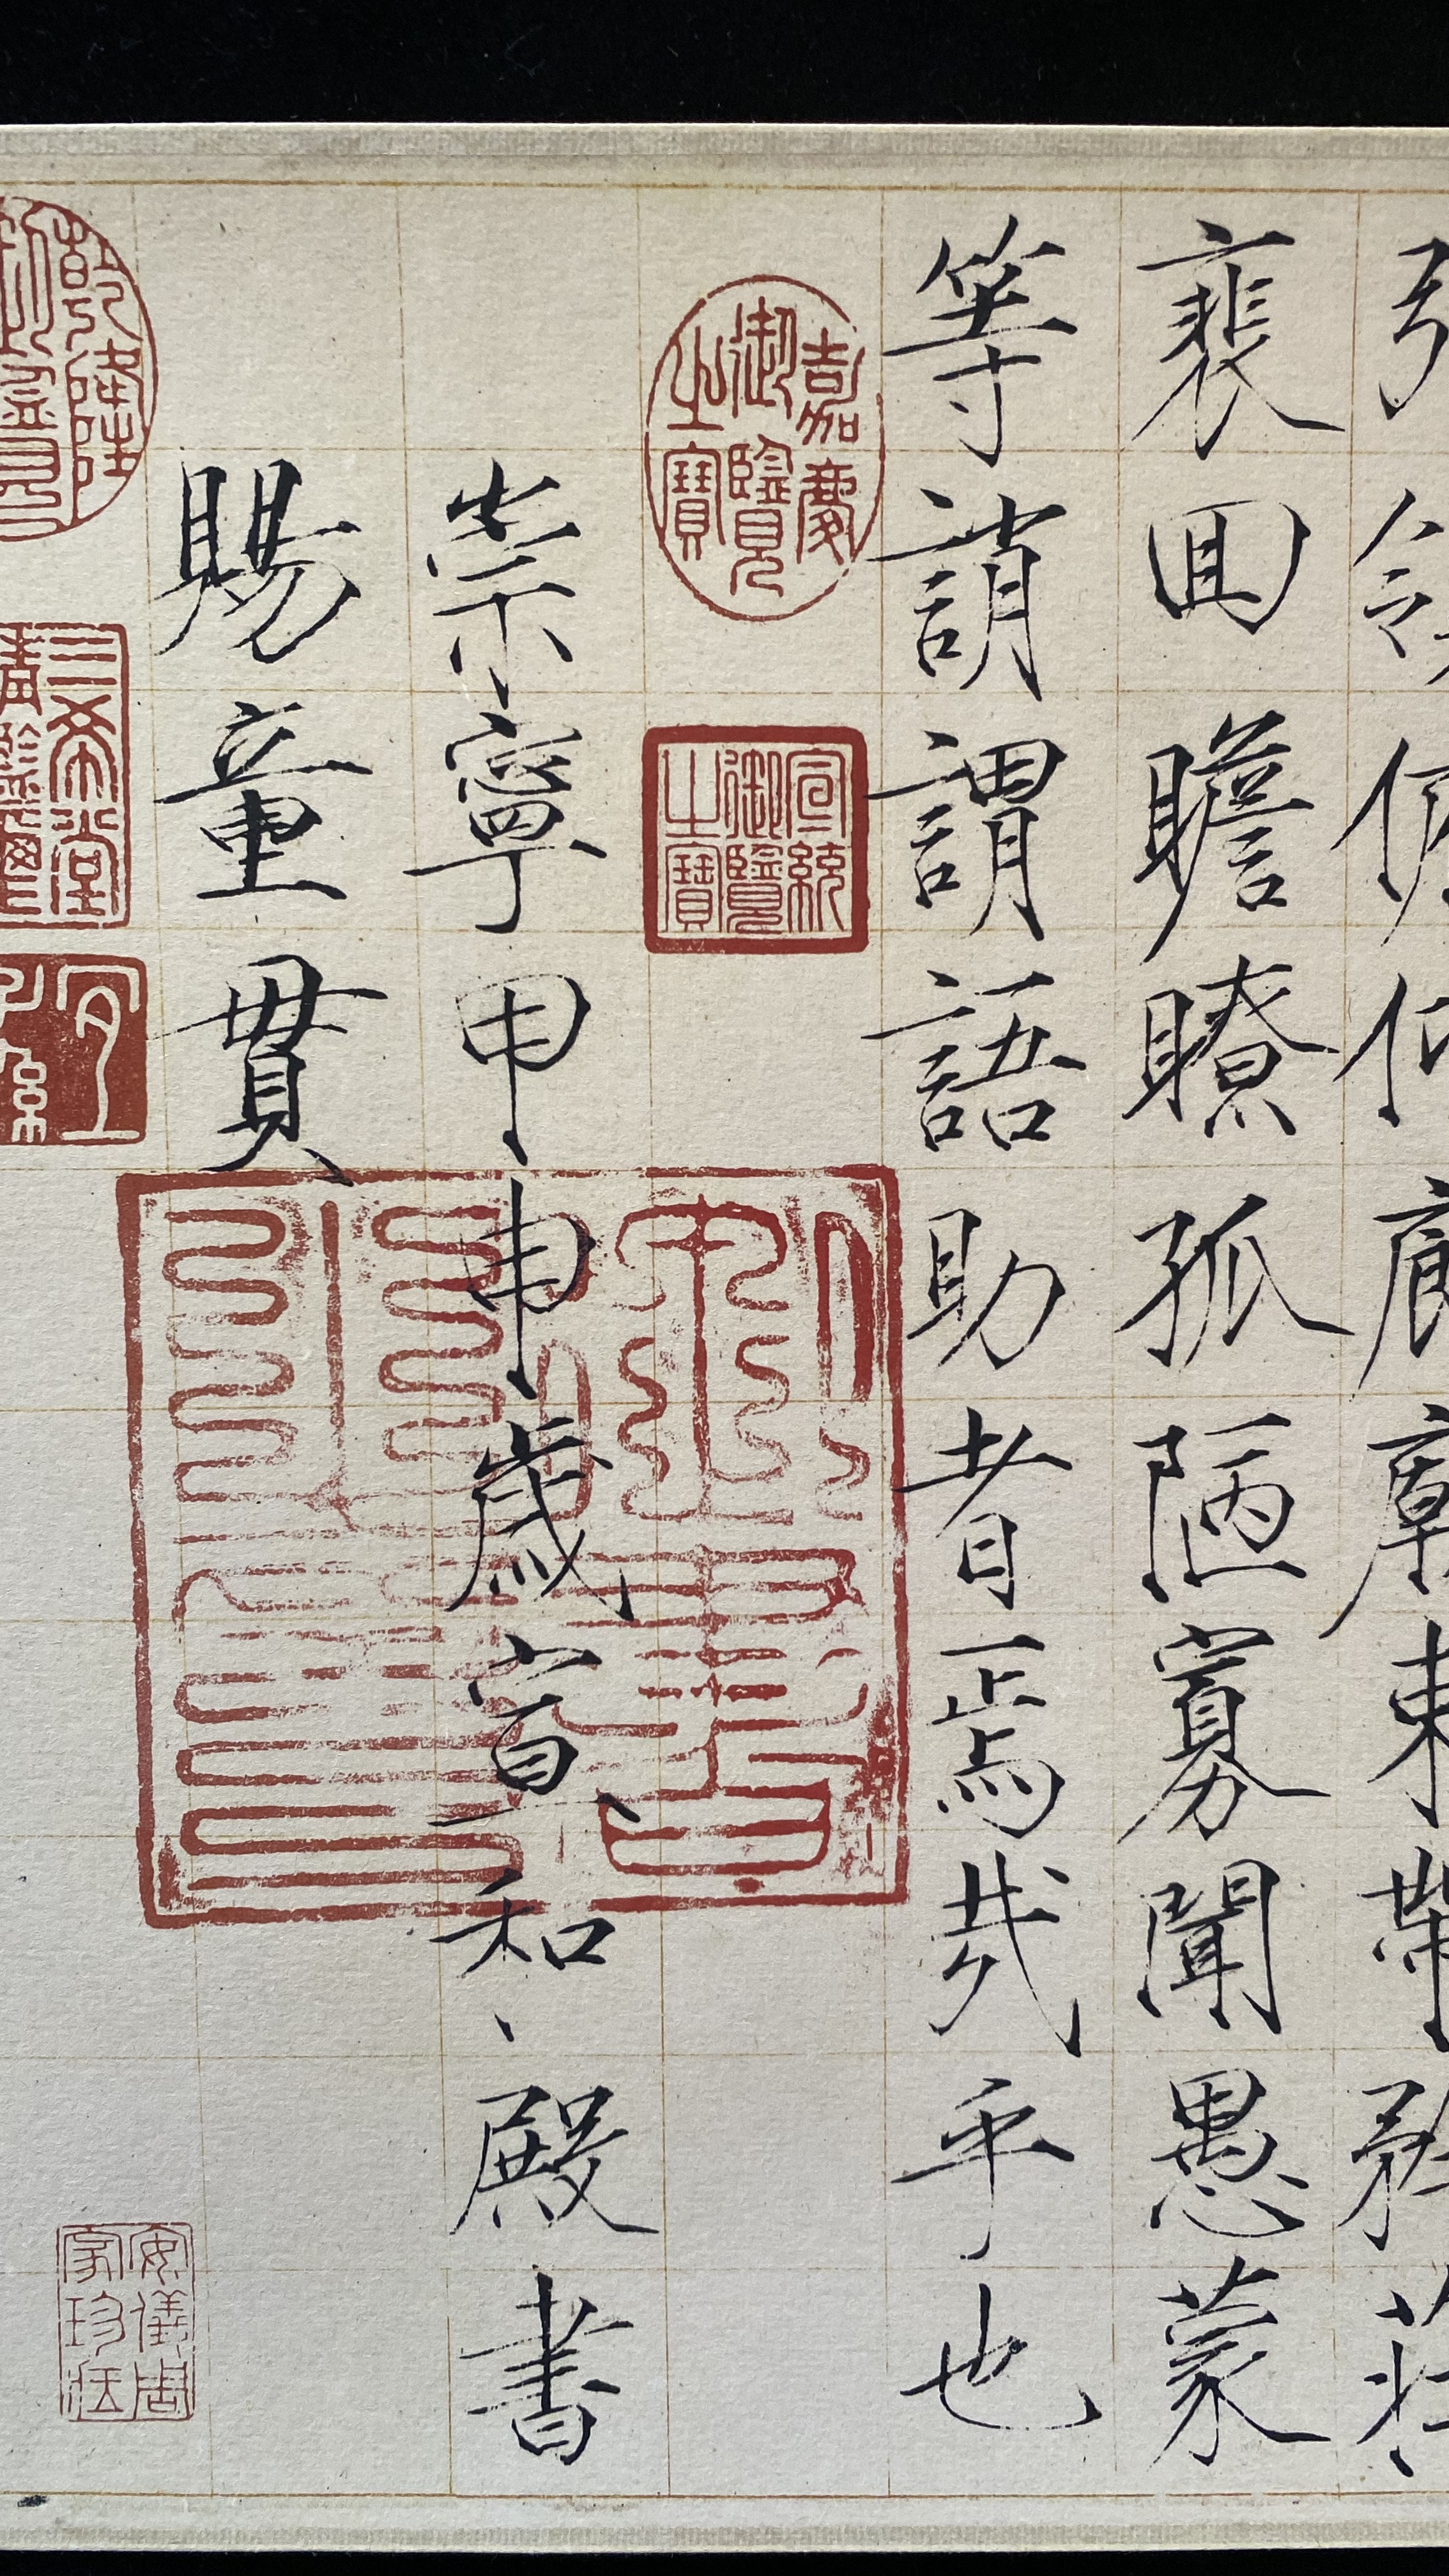 引領俯仰廊廟束帶矜莊
裴囬瞻瞭孤陋寡聞愚蒙
等誚謂語助者焉哉乎也
嘉慶御覽之寶
宣統御覽之寶
崇寧甲申歲宣和殿書
賜童貫
乾隆御覽
三希堂精鑑璽
宜子孫
安儀周家珍藏